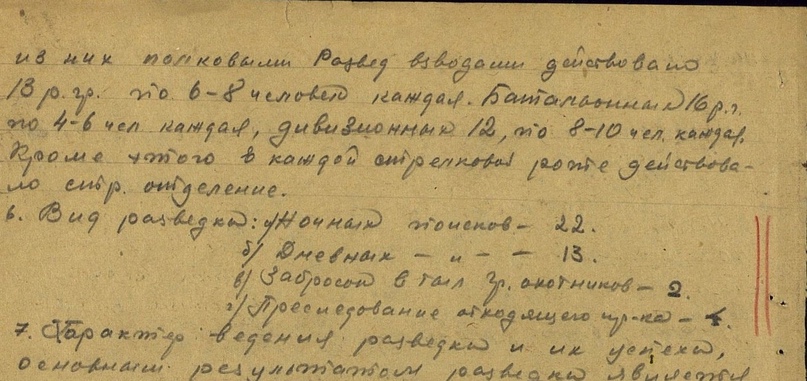 из них полковыми развед взводами действовало
13 р. гр. по 6-8 человек каждая. Батальонных 16 р.г.
по 4-6 чел каждая, дивизионных 12, по 8-10 чел. каждая.
Кроме этого в каждой стрелковой роте действова-
ло стр. отделение.
6. Вид разведки: а) Ночных поисков - 22.
б) Дневных - " - - 13.
в) Забросок в тыл гр. охотников - 2.
г) Преследование отходящего пр-ка - 4.
7. Характер ведения разведки и их успехи,
основным результатом разведки является